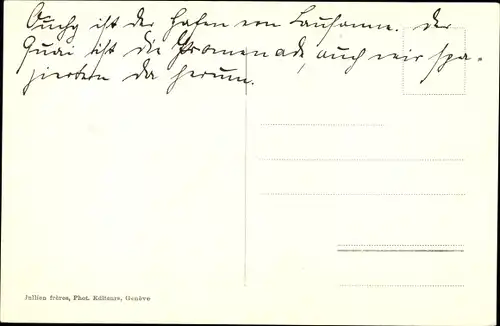 Ouchy ist der Hafen von Lausanne. Der
Quai ist die Promenade, auch wir spa-
zierten da herum.
Jullien frères, Phot. Editeurs, Genève